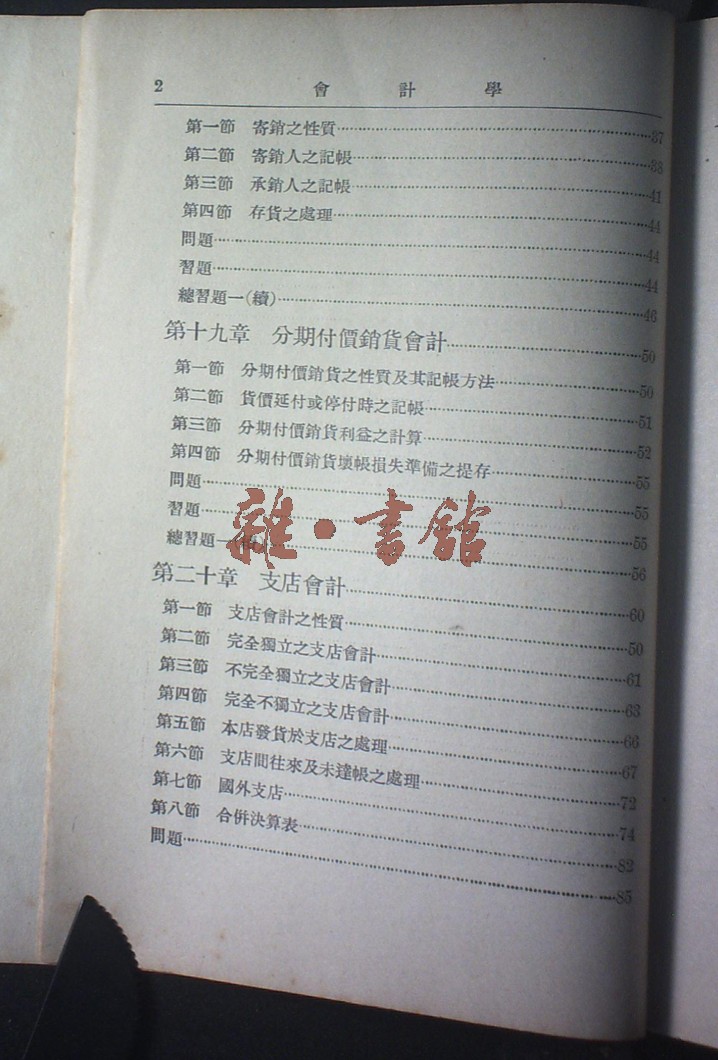 2 會計學
第一節 寄銷之性質……37
第二節 寄銷人之記帳……38
第三節 承銷人之記帳……41
第四節 存貨之處理……44
問題……44
習題……44
總習題一(續)……46
第十九章 分期付價銷貨會計……50
第一節 分期付價銷貨之性質及其記帳方法……50
第二節 貨價延付或停付時之記帳……51
第三節 分期付價銷貨利益之計算……52
第四節 分期付價銷貨壞帳損失準備之提存……55
問題……55
習題……55
總習題一……56
雜·書館
第二十章 支店會計……60
第一節 支店會計之性質……50
第二節 完全獨立之支店會計……61
第三節 不完全獨立之支店會計……63
第四節 完全不獨立之支店會計……66
第五節 本店發貨於支店之處理……67
第六節 支店間往來及未達帳之處理……72
第七節 國外支店……74
第八節 合併決算表……82
問題……85